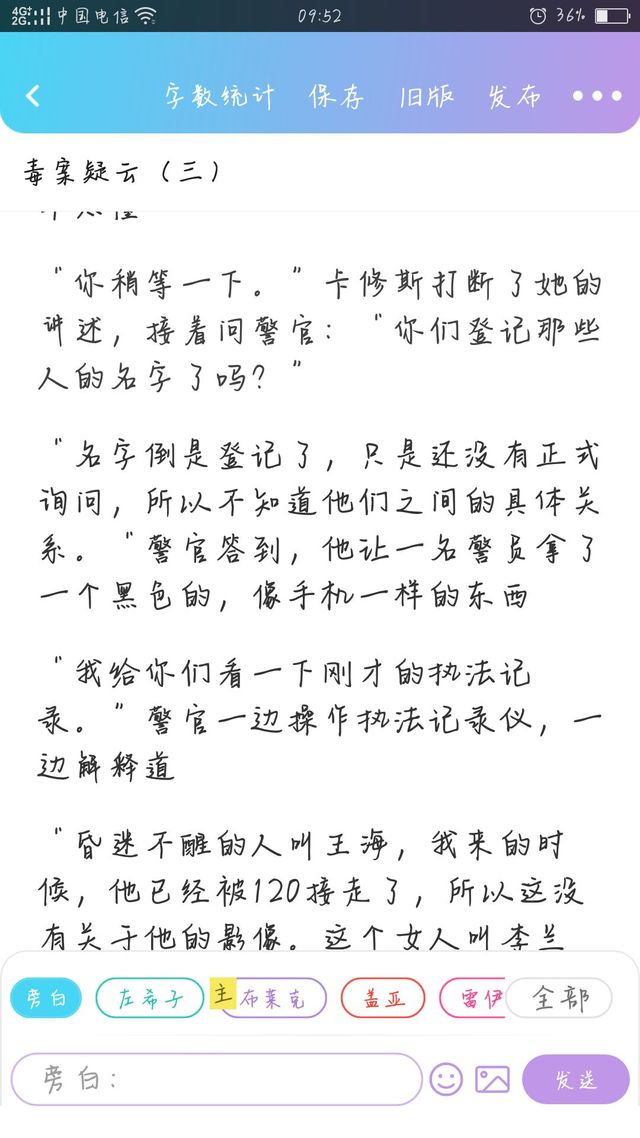 4G+ 2G 中国电信 09:52 36%
字数统计 保存 旧版 发布
毒案疑云（三）
“你稍等一下。”卡修斯打断了她的
讲述，接着问警官：“你们登记那些
人的名字了吗？”
“名字倒是登记了，只是还没有正式
询问，所以不知道他们之间的具体关
系。“警官答到，他让一名警员拿了
一个黑色的，像手机一样的东西
“我给你们看一下刚才的执法记
录。”警官一边操作执法记录仪，一
边解释道
“昏迷不醒的人叫王海，我来的时
候，他已经被120接走了，所以这没
有关于他的影像。这个女人叫李兰
旁白 左希子 主 布莱克 盖亚 雷伊 全部
旁白： 发送